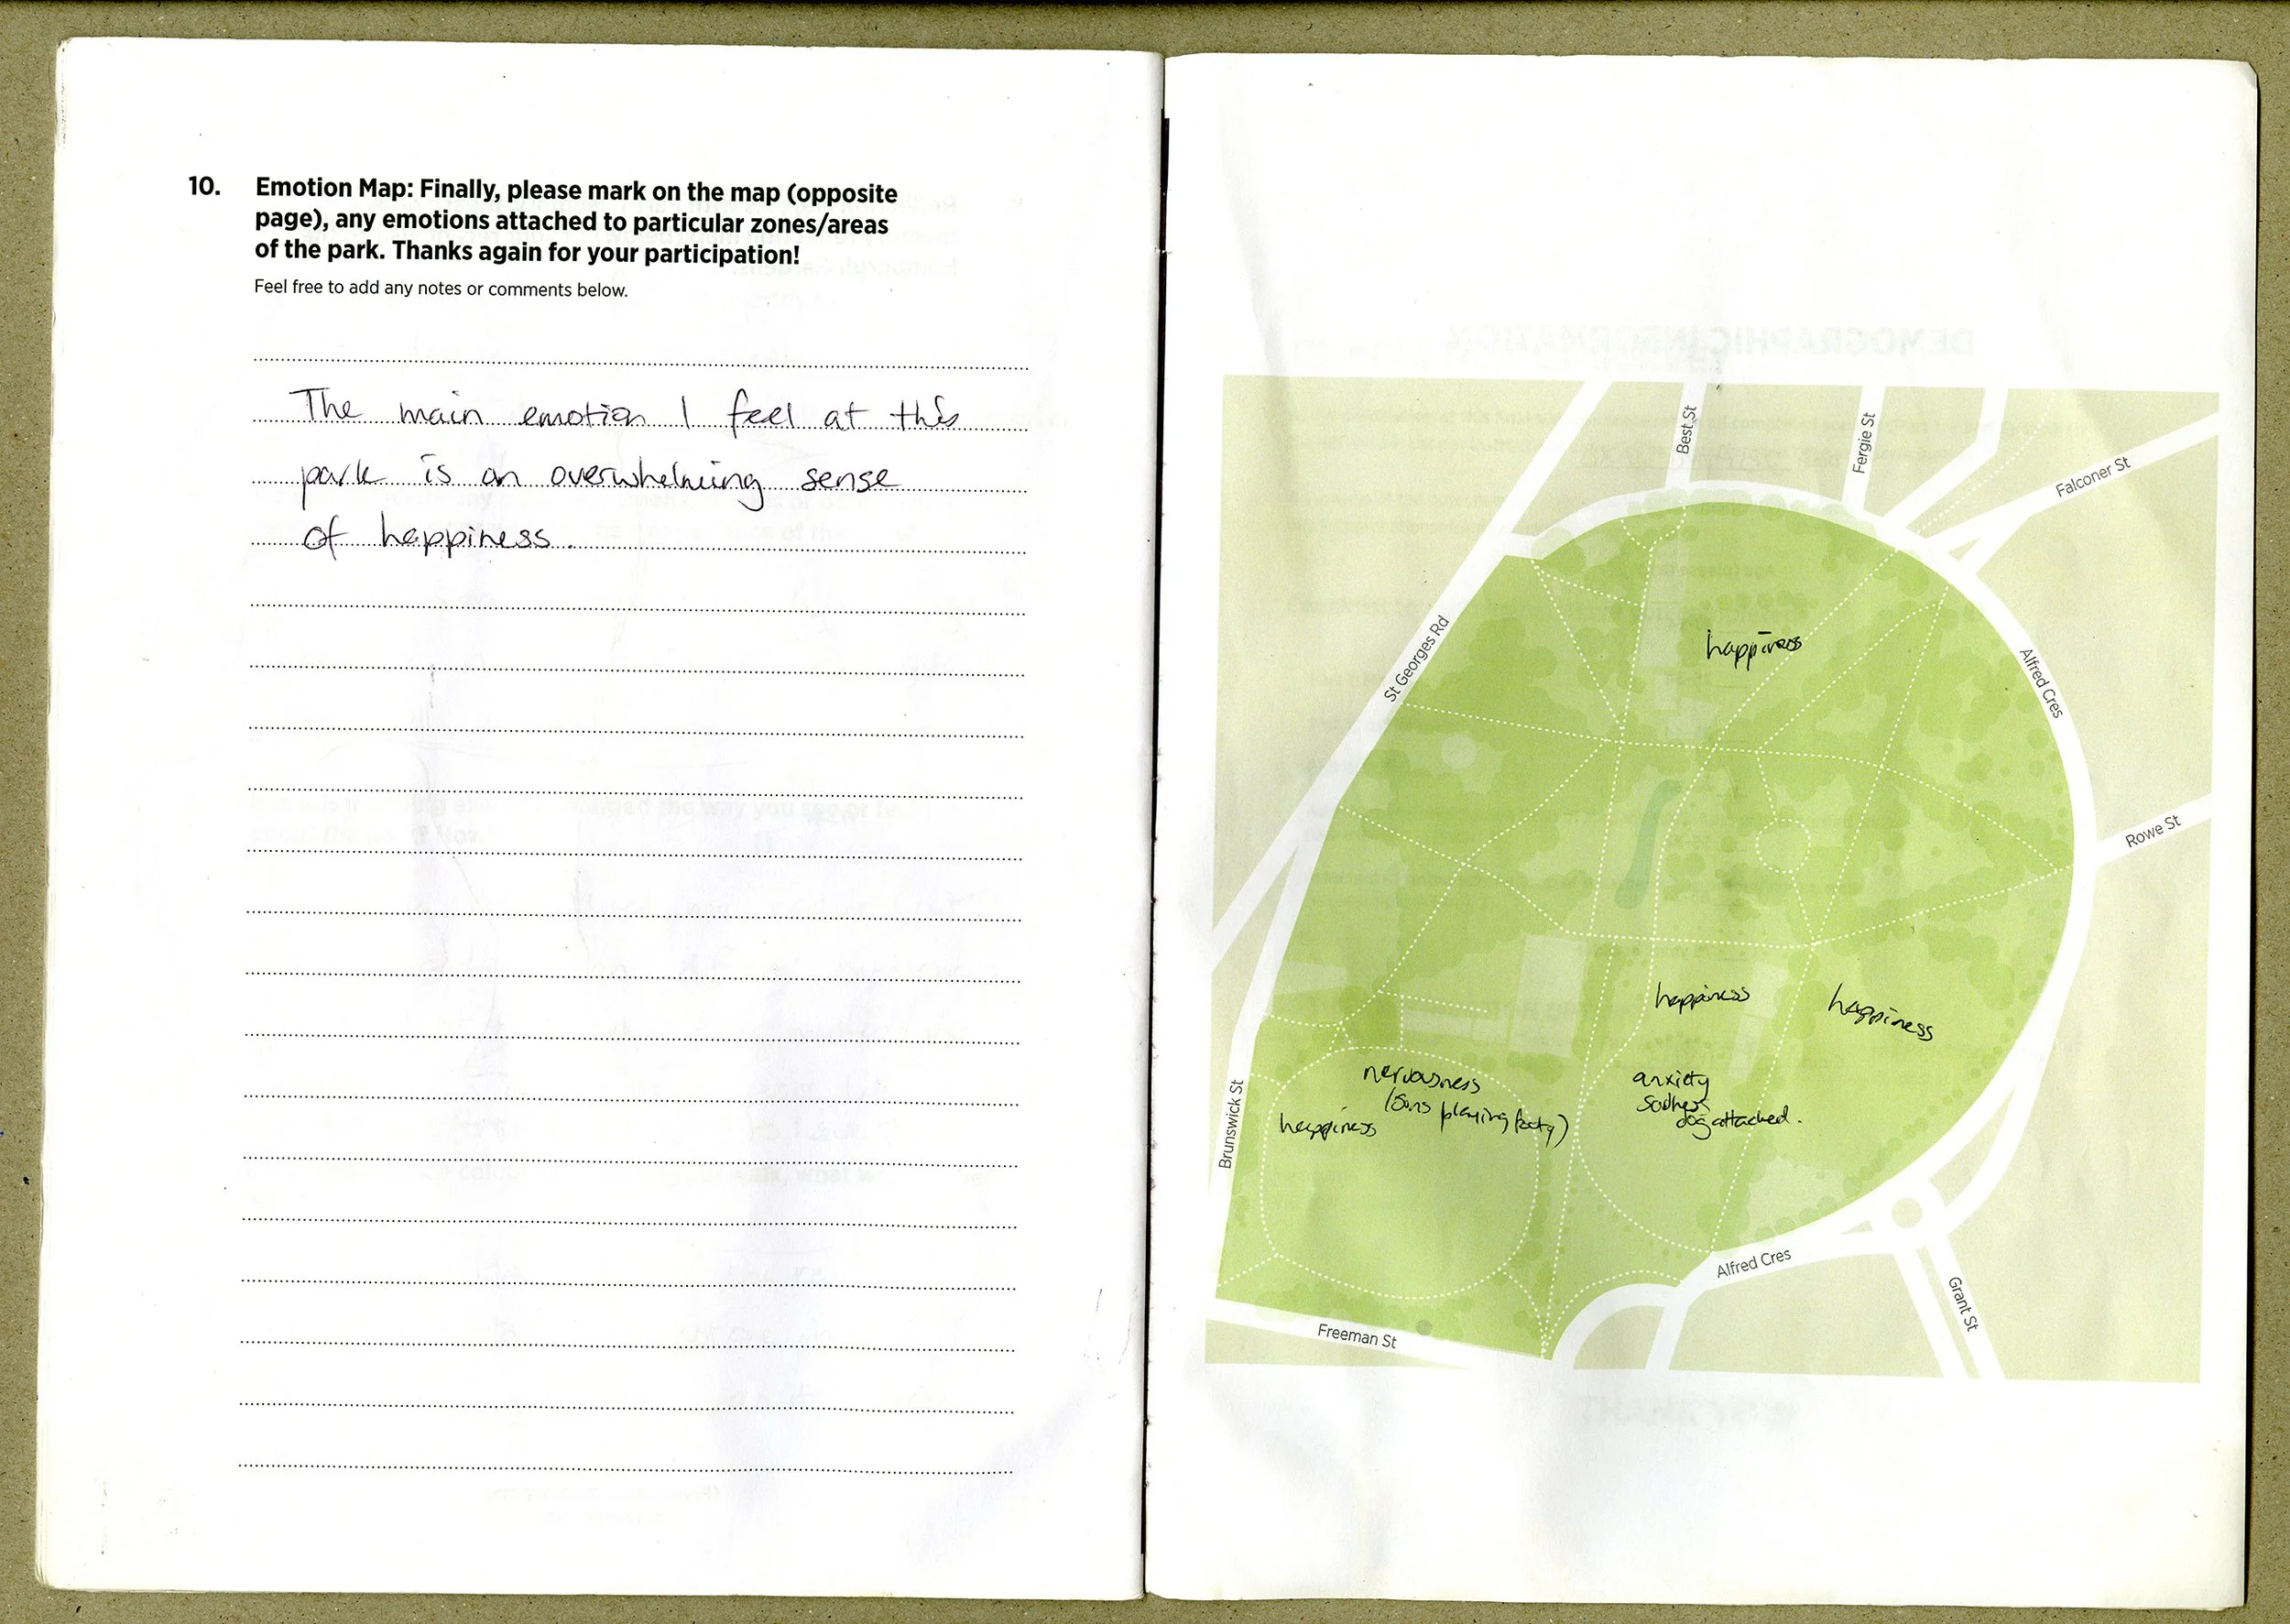 10. Emotion Map: Finally, please mark on the map (opposite
page), any emotions attached to particular zones/areas
of the park. Thanks again for your participation!
Feel free to add any notes or comments below.
The main emotion I feel at this
park is an overwhelming sense
of happiness.
DEMOGRAPHIC INFORMATION
Best St
Fergie St
Falconer St
St Georges Rd
happiness
Alfred Cres
Rowe St
happiness
happiness
Brunswick St
nervousness
(sons playing footy)
happiness
anxiety
sadness
dog attached.
Alfred Cres
Grant St
Freeman St